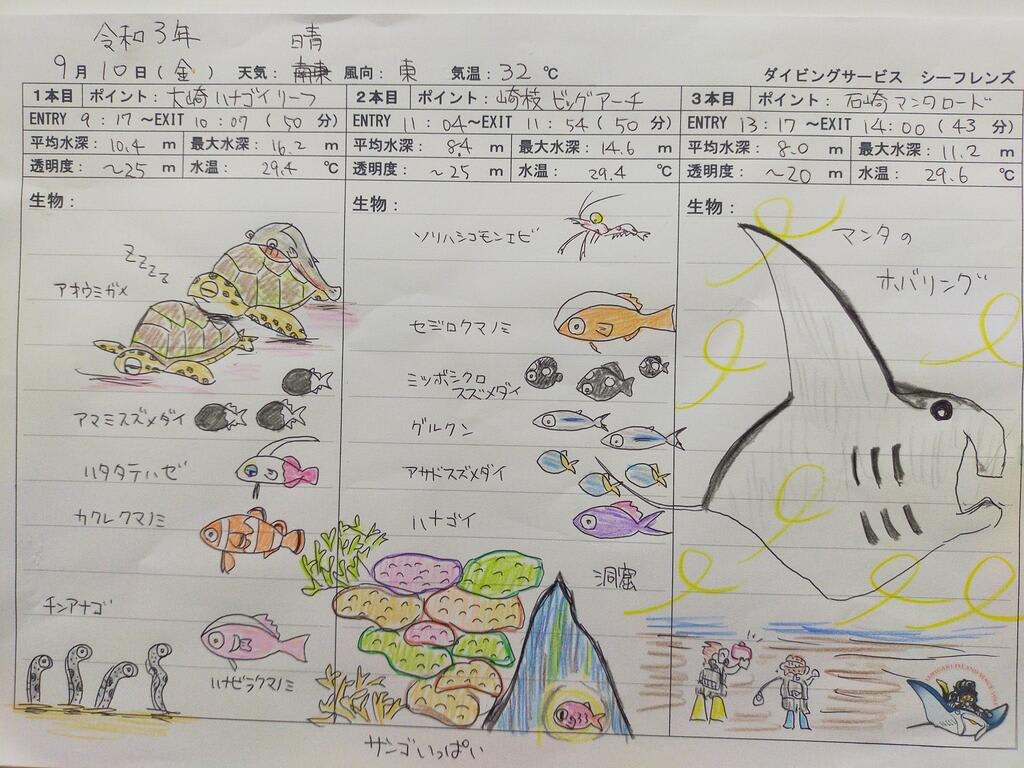 令和3年
晴
9月10日(金) 天気: 風向:東 気温:32℃
ダイビングサービス シーフレンズ
1本目 ポイント:大崎ハナゴイリーフ
ENTRY 9:17～EXIT 10:07(50分)
平均水深:10.4m 最大水深:16.2m
透明度:~25m 水温:29.4℃
生物:
zzzz
アオウミガメ
アマミスズメダイ
ハタタテハゼ
カクレクマノミ
チンアナゴ
ハナビラクマノミ
2本目 ポイント:崎枝ビッグアーチ
ENTRY 11:04～EXIT 11:54(50分)
平均水深:8.4m 最大水深:14.6m
透明度:~25m 水温:29.4℃
生物:
ソリハシコモンエビ
セジロクマノミ
ミツボシクロ
スズメダイ
グルクン
アサドスズメダイ
ハナゴイ
洞窟
サンゴいっぱい
3本目 ポイント:石崎マンタロード
ENTRY 13:17～EXIT 14:00(43分)
平均水深:8.0m 最大水深:11.2m
透明度:~20m 水温:29.6℃
生物:
マンタの
ホバリング